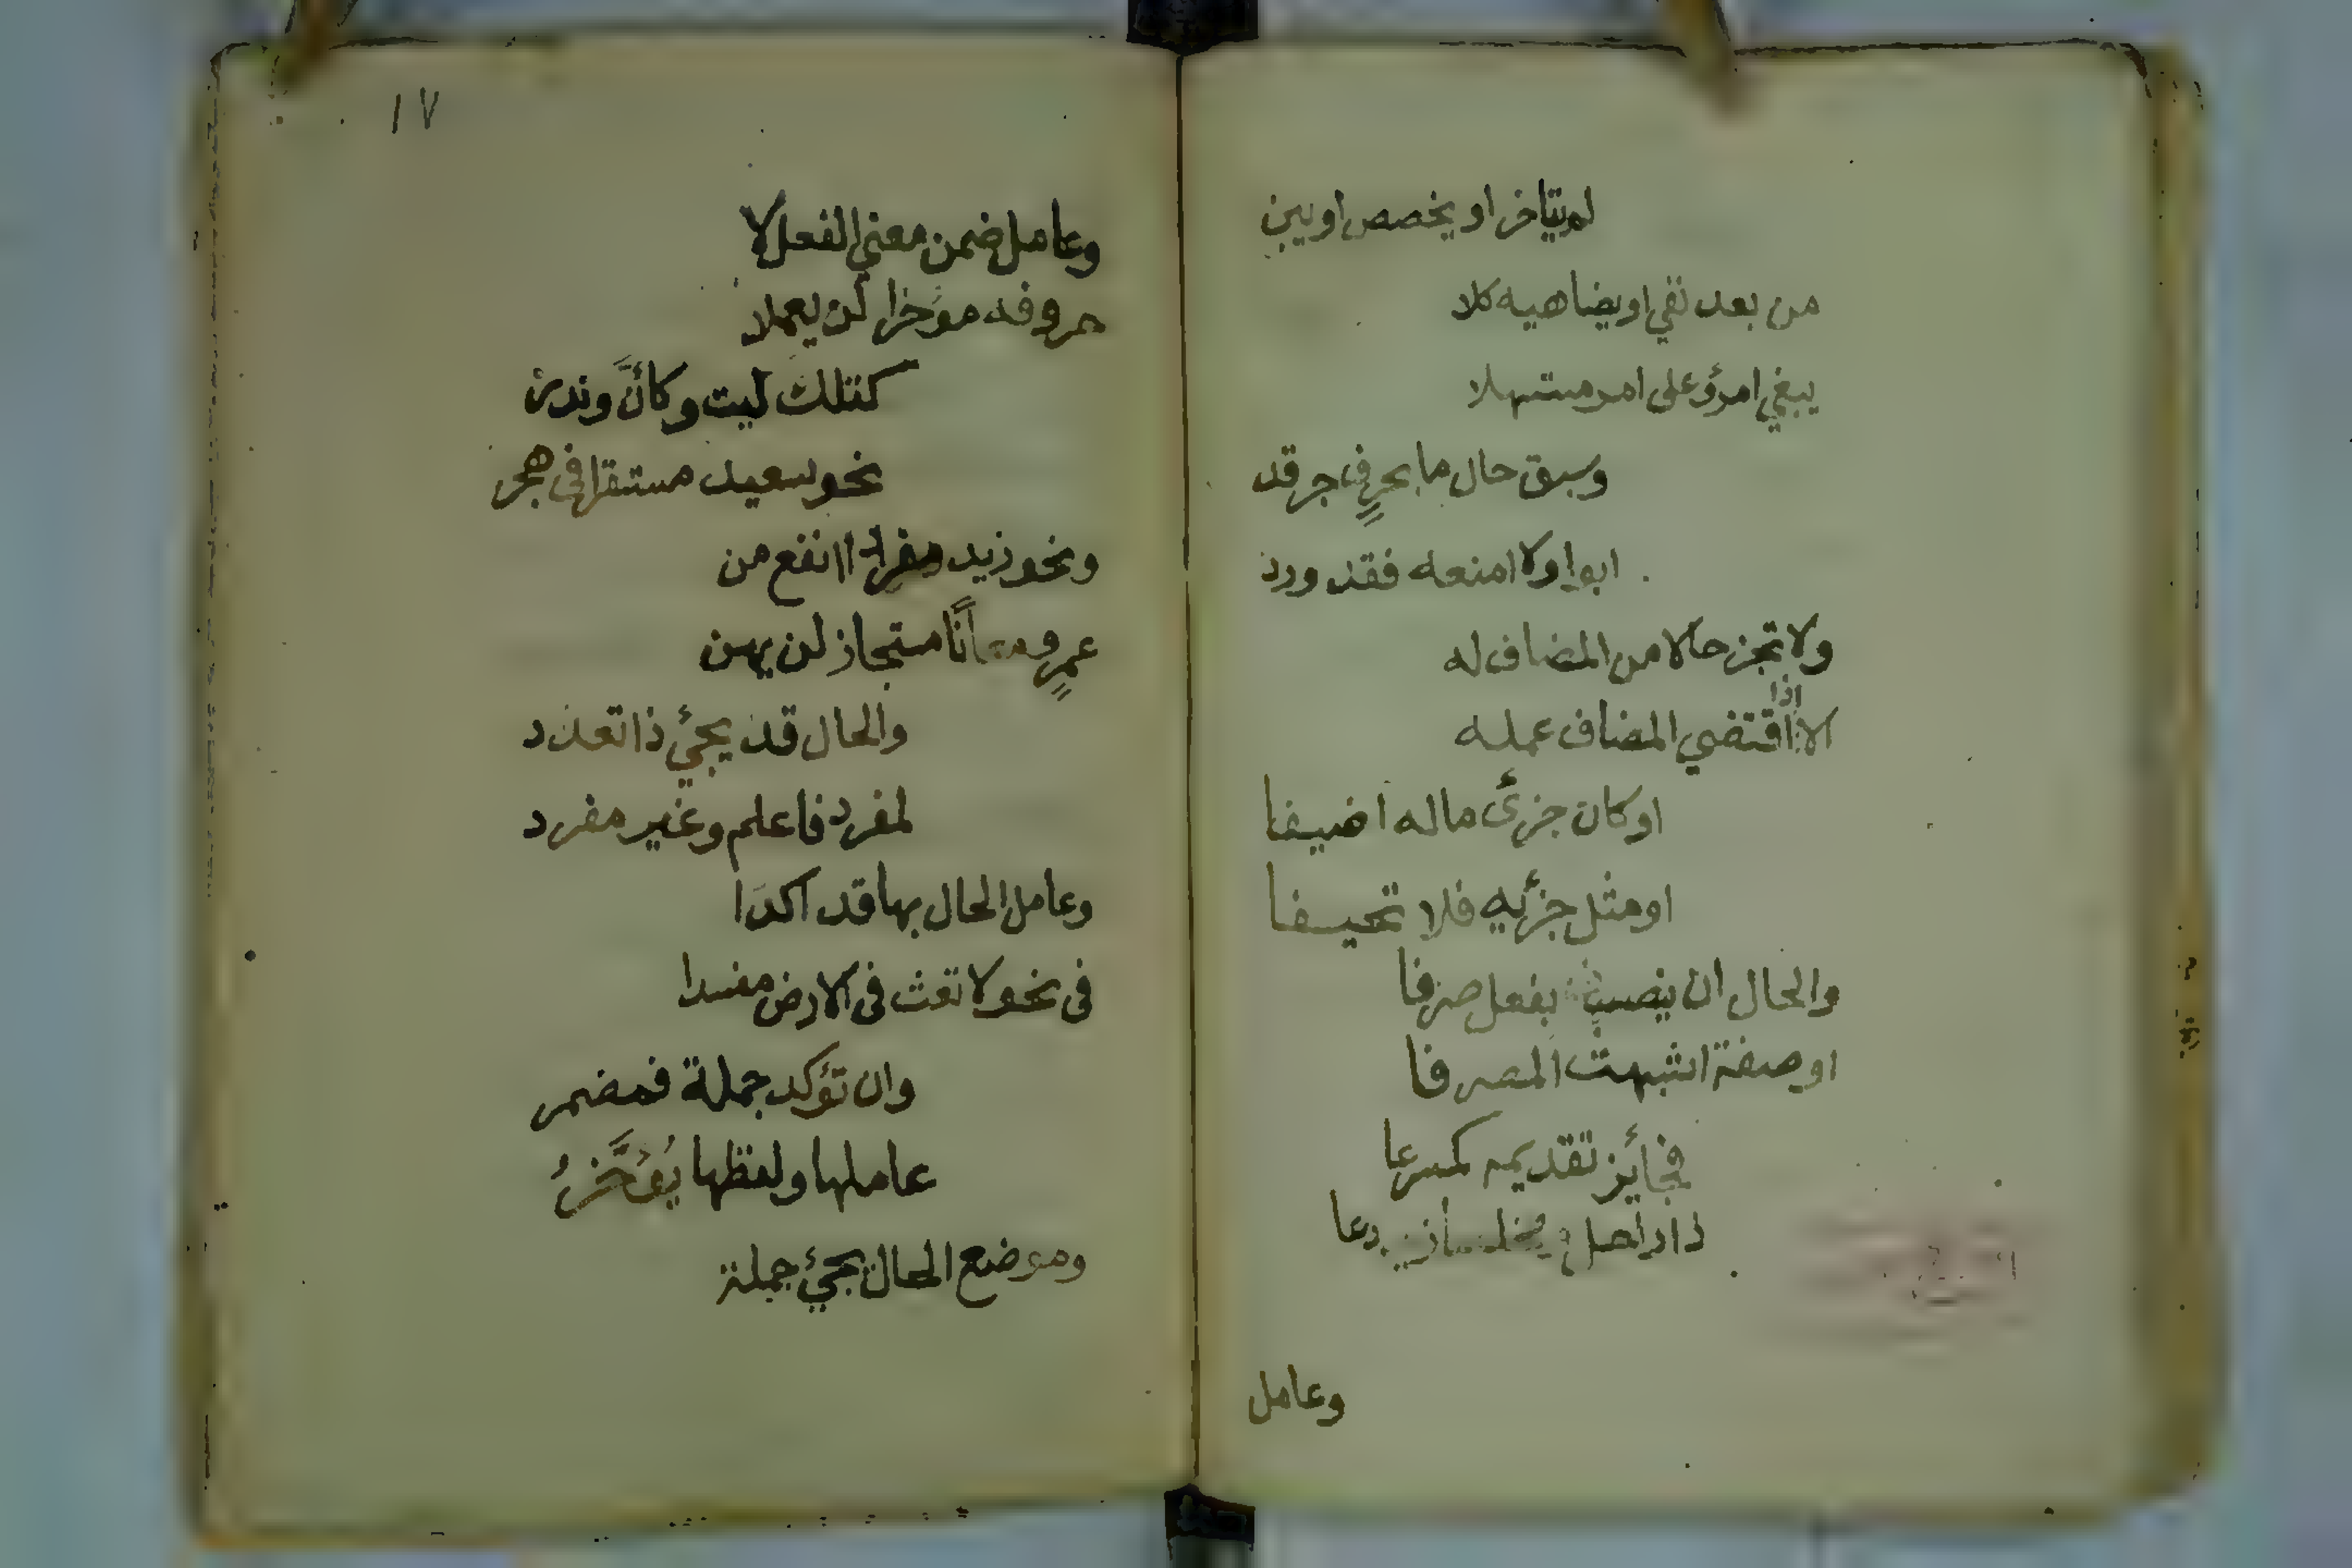 لم يتاخر او يخصص او يبن
من بعد نفي او يضاهيه كلا
يبغي امرؤ على امر مستسهلا
وسبق حال ما بحرفٍ جر قد
ابوا ولا امنعه فقد ورد
ولا تجز حالا من المضاف له
الا اذا اقتضي المضاف عمله
او كان جزئ ماله اضيفا
او مثل جزئه فلا تحيفا
والحال ان ينصب بفعل صرفا
او صفة اشبهت المصرفا
فجائز تقديمه كمسرعا
ذا راحل و مخلصا زيد دعا
وعامل
١٧
وعامل ضمن معنى الفعل لا
حروفه موخرا لن يعملا
كتلك ليت وكأنَّ وندر
نحو سعيد مستقرا فى هجر
ونحو زيد مفردا انفع من
عمرٍو معانًا مستجاز لن يهن
والحال قد يجئ ذا تعدد
لمفرد فاعلم وغير مفرد
وعامل الحال بها قد اكدا
فى نحو لا تعث فى الارض مفسدا
وان تؤكد جملة فمضمر
عاملها ولفظها يُؤخَّرُ
وموضع الحال يجئ جملة